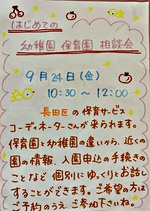 はじめての
幼稚園 保育園 相談会
9月24日(金)
10:30〜12:00
長田区の保育サービス
コーディネーターさんが来られます。
保育園と幼稚園の違いから、近く
園の情報、入園申込の手続きの
ことなど 個別にゆっくりとお話し
することができます。ご希望の方は
ご予約のうえ、ご参加下さいね。